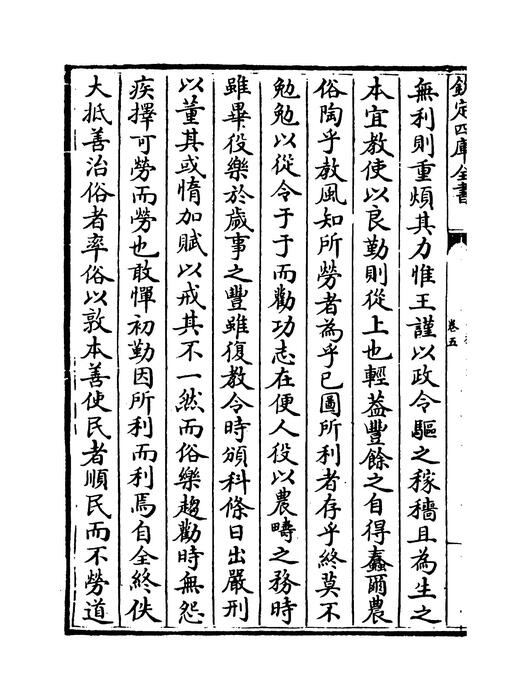 欽定四庫全書
卷五
無利則重煩其力惟王謹以政令驅之稼穡且為生之
本宜教使以良勤則從上也輕葢豐餘之自得蠢爾農
俗陶乎教風知所勞者為乎己圖所利者存乎終莫不
勉勉以從令于于而勸功志在便人役以農疇之務時
雖畢役樂於歲事之豐雖復教令時頒科條日出嚴刑
以董其或惰加賦以戒其不一然而俗樂趨勸時無怨
疾擇可勞而勞也敢憚初勤因所利而利焉自全終佚
大抵善治俗者率俗以敦本善使民者順民而不勞道